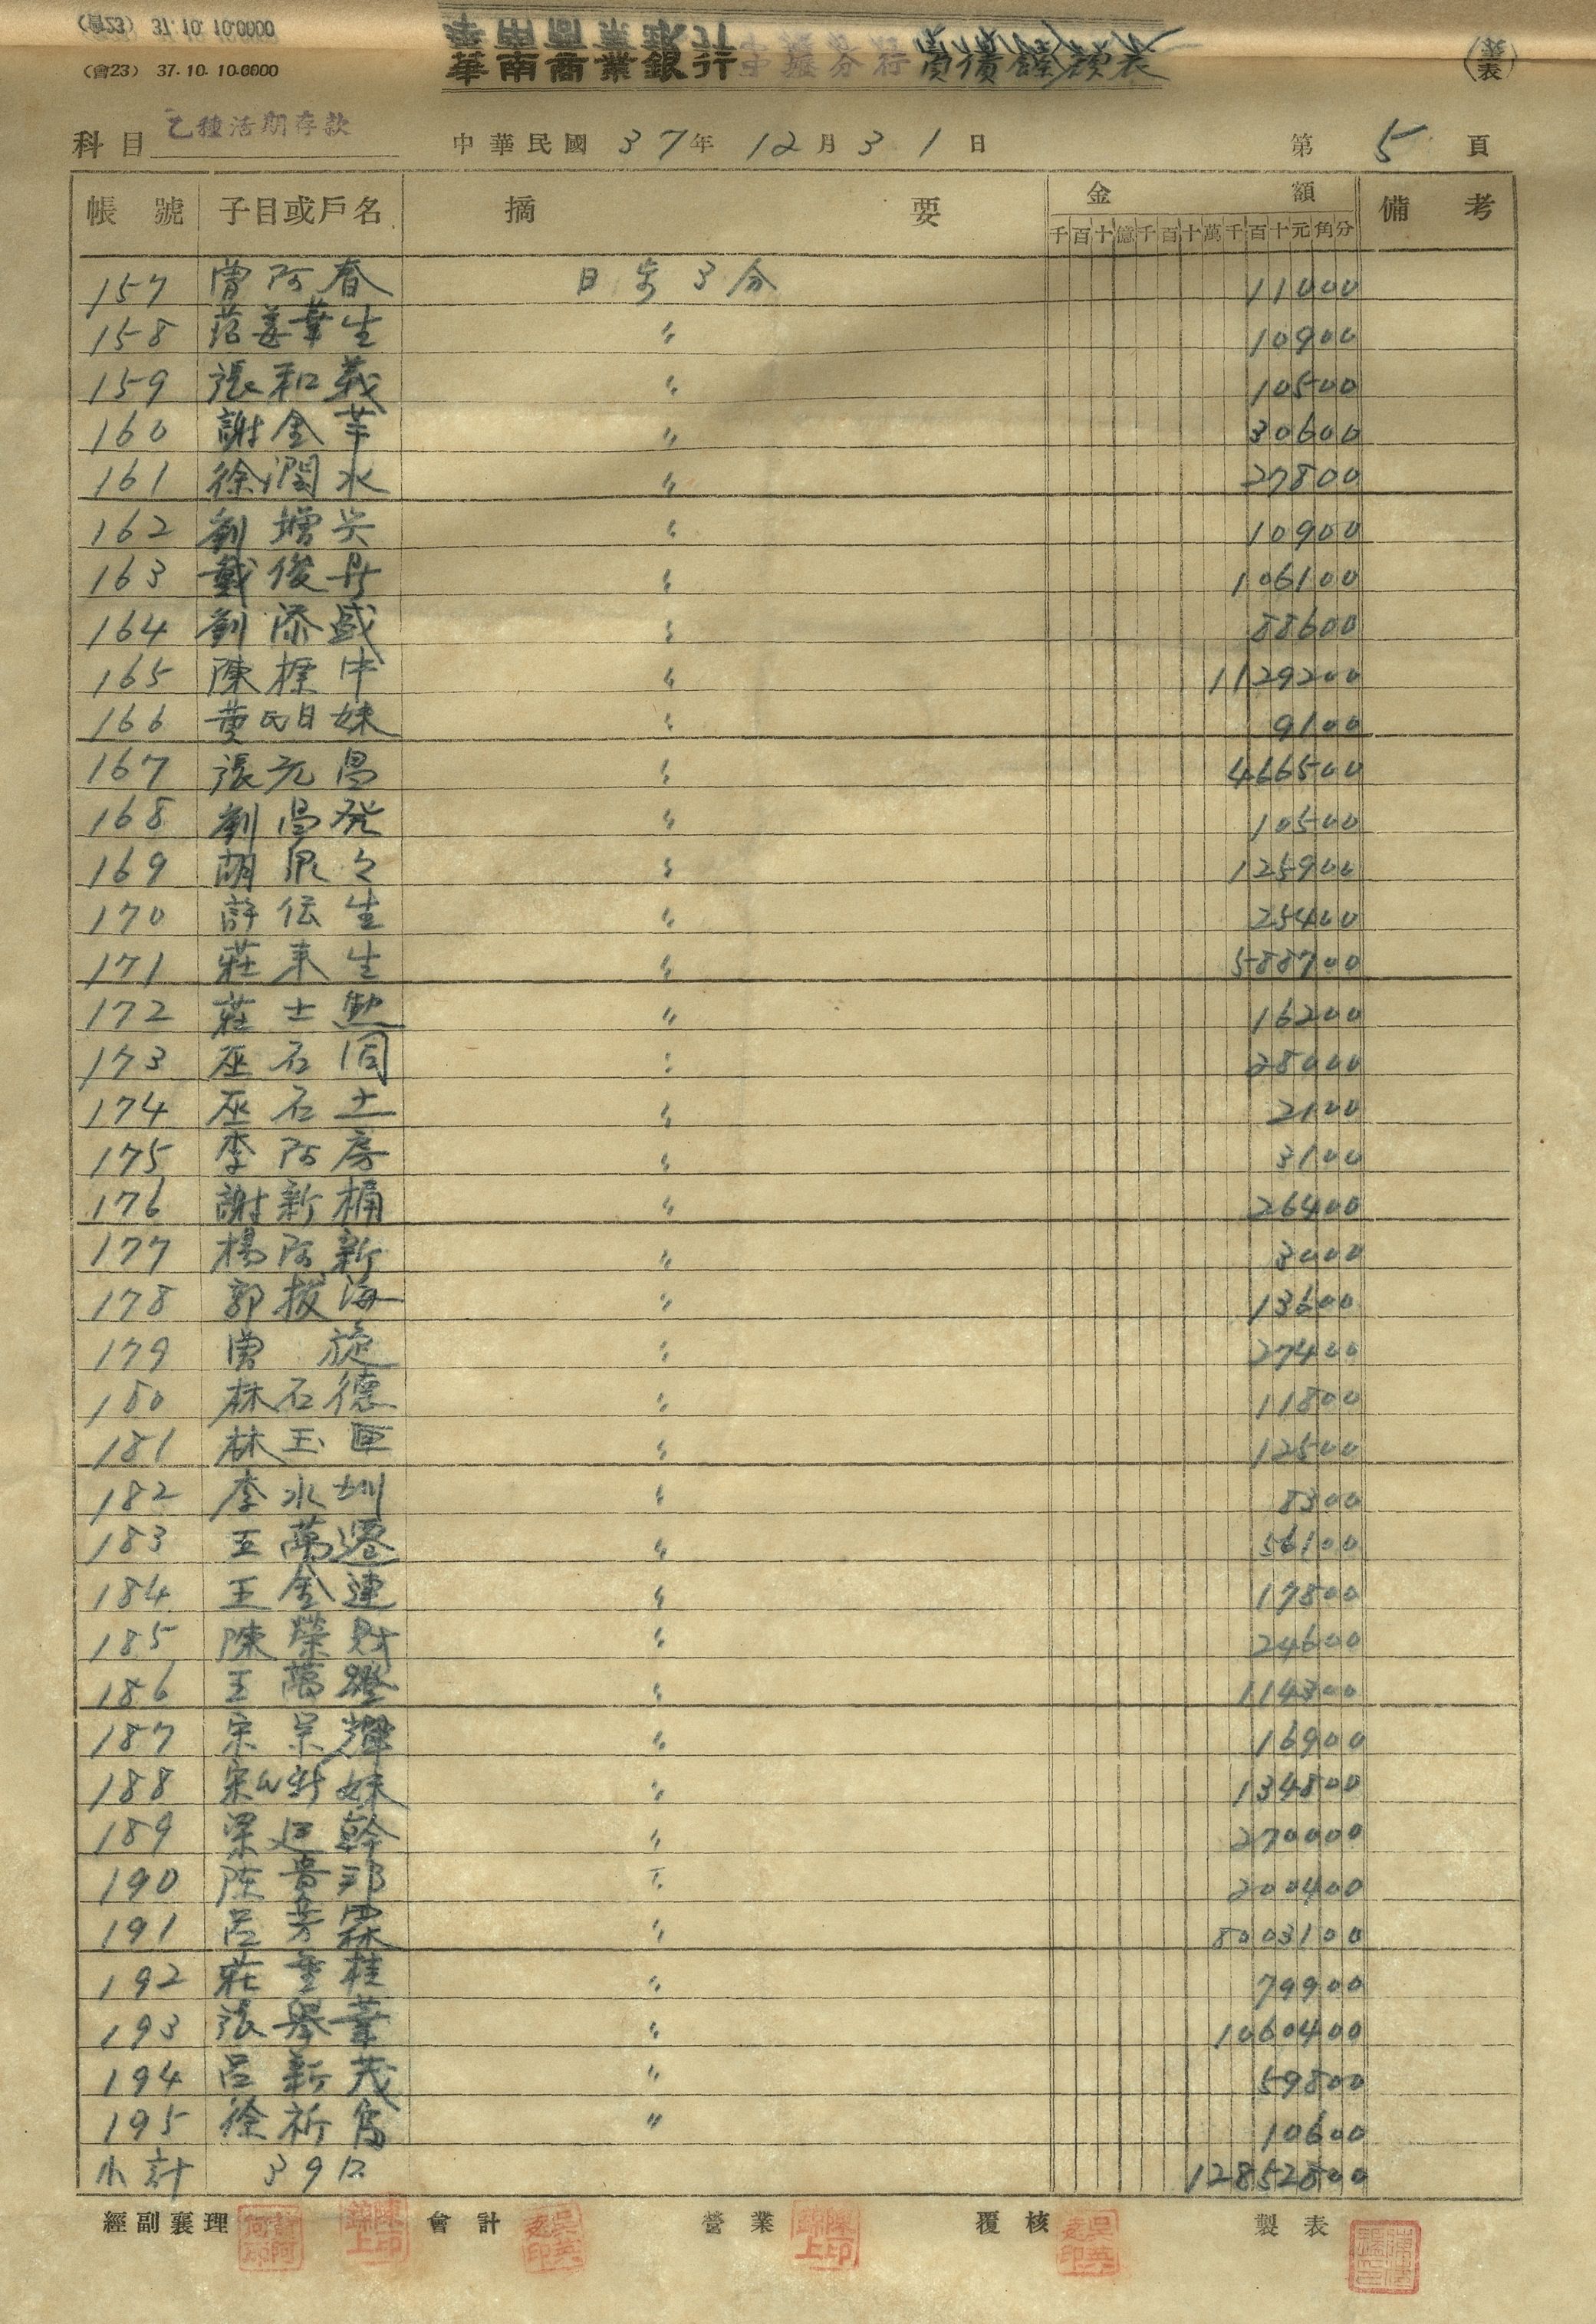 (會23) 37.10.10.0000
(會23) 37.10.10.0000
華南商業銀行 中壢分行 資債餘額表
科目 乙種活期存款 中華民國 37年 12月 31日 第 5 頁
帳號 子目或戶名 摘要 金額 備考
千百十億千百十萬千百十元角分
157 曾阿春 日步3分 11000
158 范姜華生 〃 10900
159 張和義 〃 10500
160 謝金 〃 30600
161 徐潤水 〃 27800
162 劉增 〃 10900
163 戴俊 〃 106100
164 劉添盛 〃 88600
165 陳標中 〃 1129200
166 黃氏日妹 〃 9100
167 張元昌 〃 466500
168 劉昌發 〃 10500
169 胡 〃 125900
170 許伝生 〃 25400
171 莊来生 〃 588700
172 莊士勲 〃 16200
173 巫石 〃 28000
174 巫石土 〃 2100
175 李阿房 〃 3100
176 謝新桶 〃 26400
177 楊阿新 〃 3000
178 郭拔海 〃 13600
179 曾旋 〃 27400
180 林石德 〃 11800
181 林玉 〃 12500
182 李水圳 〃 8300
183 王萬 〃 56100
184 王金連 〃 17800
185 陳榮財 〃 24600
186 王萬 〃 114300
187 宋 輝 〃 16900
188 宋 新妹 〃 134800
189 梁廷幹 〃 270000
190 陳貴邦 〃 200400
191 呂芳霖 〃 8003100
192 莊重桂 〃 79900
193 張 華 〃 1060400
194 呂新茂 〃 59800
195 徐祈 〃 10600
小計 39口 12852800
經副襄理 會計 營業 覆核 製表